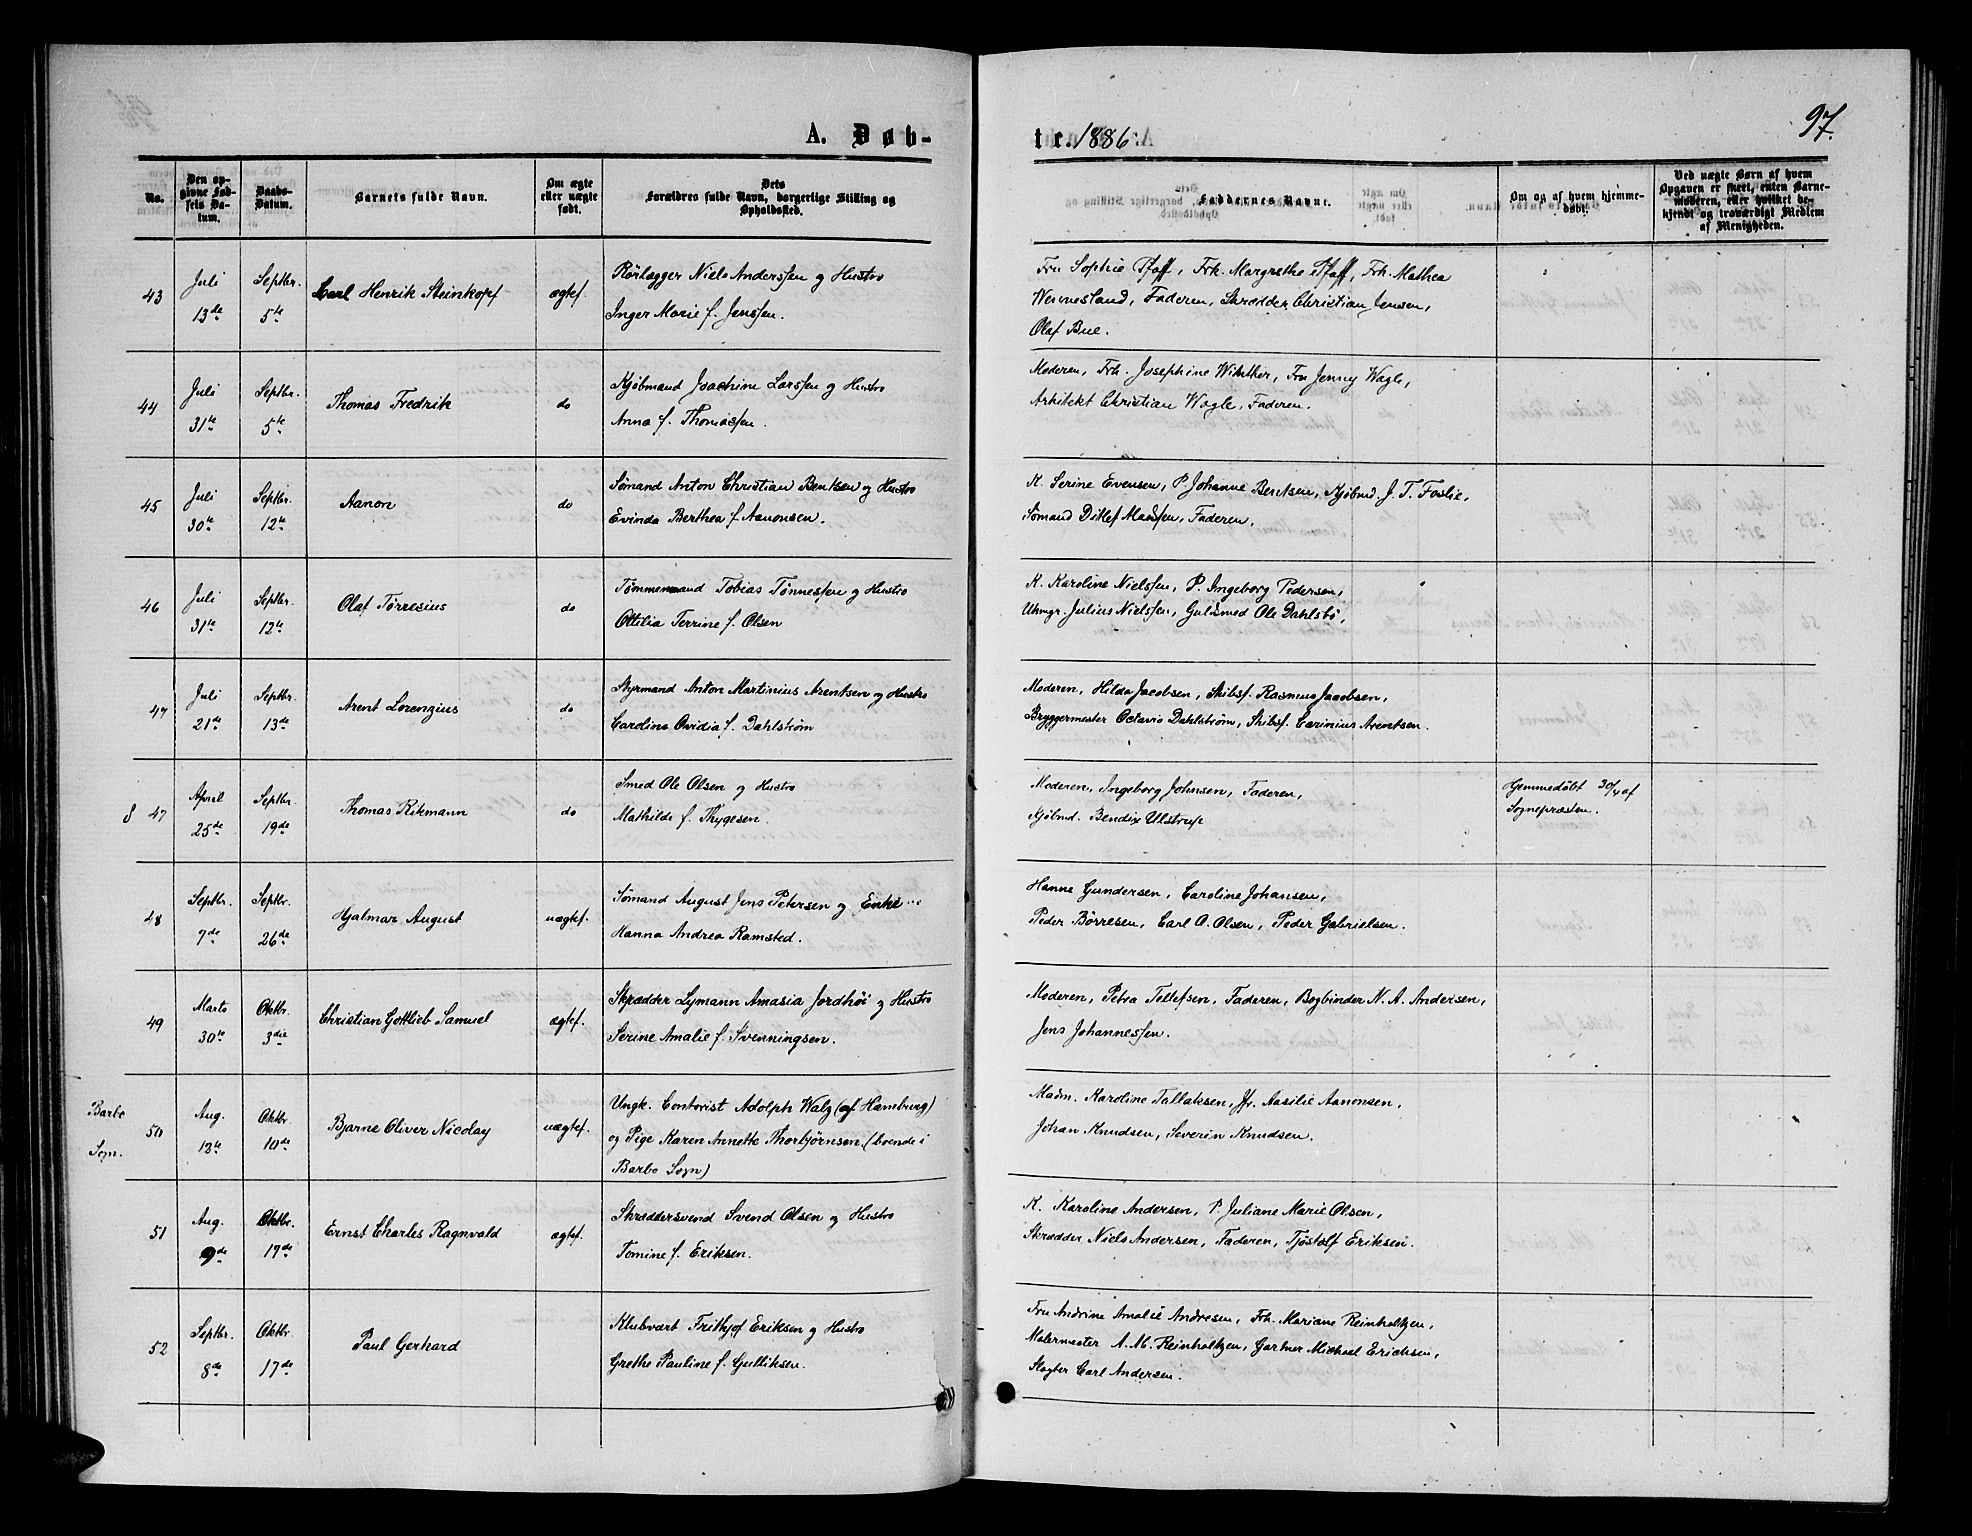 97.
A. Døb-
te. 1886.
No.
Den op-
givne Fød-
sels Da-
tum.
Daabs-
Datum.
Barnets fulde Navn.
Om ægte
eller uægte
født.
Dets
Forældres fulde Navn, borgerlige Stilling og
Opholdssted.
Faddernes Navne.
Om og af hvem hjemme-
døbt.
Ved uægte Børn af hvem
Opgaven er skeet, enten Barne-
moderen, eller hvilket be-
kjendt og troværdigt Medlem
af Menigheden.
43
Juli
13de
Septbr.
5te
Carl Henrik Steinkopf
ægtef.
Rørlægger Niels Anderssen og Hustro
Inger Marie f. Jenssen.
Fru Sophie Pfaff, Frk. Margrethe Pfaff, Frk. Mathea
Wennesland, Faderen, Skrædder Christian Jensen,
Olaf Bue.
44
Juli
31te
Septbr.
5te
Thomas Fredrik
do
Kjøbmand Joachim Larssen og Hustro
Anna f. Thomassen.
Moderen, Frk. Josephine Winther, Fru Jenny Wagle,
Arkitekt Christian Wagle, Faderen.
45
Juli
30te
Septbr.
12te
Aanon
do
Sømand Anton Christian Bentsen og Hustro
Evinda Berthea f. Aanonsen.
K. Serine Evensen, P. Johanne Bentsen, Kjøbmd. J. T. Foslie,
Sømand Ditlef Madssen, Faderen.
46
Juli
31te
Septbr.
12te
Olaf Tørresius
do
Tømmermand Tobias Tønnessen og Hustro
Ottilia Terrine f. Olsen
K. Karoline Nielssen, P. Ingeborg Pedersen,
Uhrmgr. Julius Nielssen, Guldsmed Ole Dahlsbø,
47
Juli
21de
Septbr.
13de
Arent Lorenzius
do
Styrmand Anton Martinius Arentsen og Hustro
Carolina Ovidia f. Dahlstrøm
Moderen, Hilda Jacobsen, Skibsf. Rasmus Jacobsen,
Bryggermester Octavio Dahlstrøm, Skibsf. Carinius Arentsen.
47
April
25de
Septbr.
19de
Thomas Rikmann
do
Smed Ole Olsen og Hustro
Mathilde f. Thygesen.
Moderen, Ingeborg Johnsen, Faderen,
Kjøbmd. Bendix Ulstrup
Hjemmedøbt 30/4 af
Sognepræsten.
48
Septbr.
7de
Septbr.
26de
Hjalmar August
uægtef.
Sømand August Jens Petersen og Enke
Hanna Andrea Ramsted.
Hanne Gundersen, Caroline Johansen,
Peder Børresen, Carl A. Olsen, Peder Gabrielsen.
49
Marts
30te
Oktbr.
3die
Christian Gottlieb Samuel
ægtef.
Skrædder Lymann Amasia Jordhøi og Hustro
Serine Amalie f. Svenningsen.
Moderen, Petra Tellefsen, Faderen, Bogbinder N. A. Andersen,
Jens Johannessen.
Barbo
Sogn.
50
Aug.
12te
Oktbr.
10de
Bjarne Oliver Nicolay
uægtef.
Ungk. Contorist Adolph Walz (af Hamburg)
og Pige Karen Annette Thorbjørnsen (boende i
Barbo Sogn)
Madm. Karoline Tallaksen, Jfr. Aasilie Aanonsen,
Johan Knudsen, Severin Knudsen.
51
Aug.
9de
Oktbr.
17de
Ernst Charles Ragnvald
ægtef.
Skræddersvend Svend Olsen og Hustro
Tomine f. Eriksen.
K. Karoline Andersen, P. Juliane Marie Olsen,
Skrædder Niels Andersen, Faderen, Tjøstolf Eriksen.
52
Septbr.
8de
Oktbr.
17de
Paul Gerhard
Klubvært Frithjof Eriksen og Hustro
Grethe Pauline f. Gulliksen.
Fru Andrine Amalie Andresen, Frk. Mariane Reinholtzen,
Malermester A. M. Reinholtzen, Gartner Michael Ericksen,
Slagter Carl Andersen.